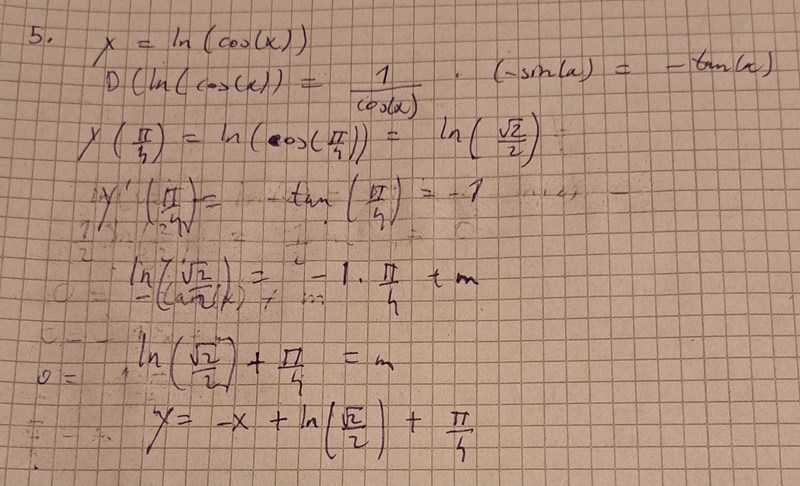 5. y = ln(cos(x))
D(ln(cos(x)) = 1/cos(x) · (-sin(x) = -tan(x)
y(π/4) = ln(cos(π/4)) = ln(√2/2)
y'(π/4) = -tan(π/4) = -1
ln(√2/2) = -1·π/4 + m
ln(√2/2) + π/4 = m
y = -x + ln(√2/2) + π/4